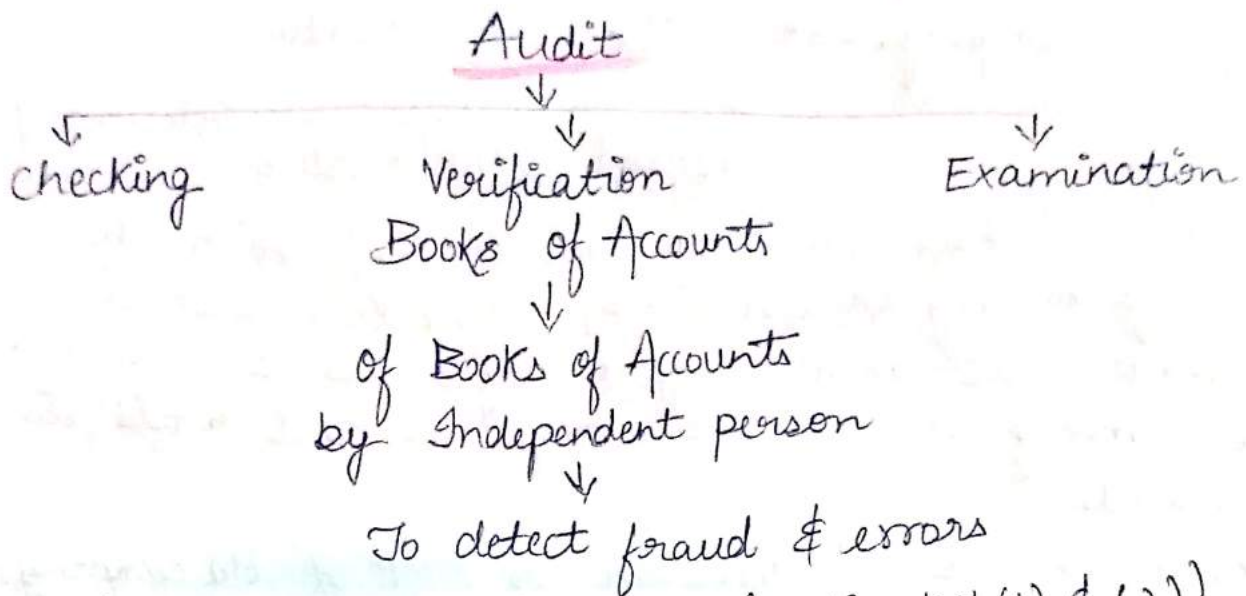 Audit
checking Verification Examination
Books of Accounts
of Books of Accounts
by Independent person
To detect fraud & errors